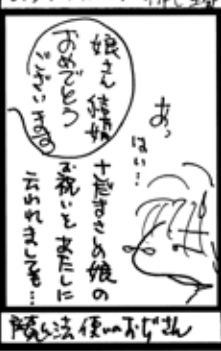 娘さん結婚
おめでとう
ございます
あっ
はい…
さだまさしの娘の
お祝いをあたしに
云われましても…
使いのおぢさん